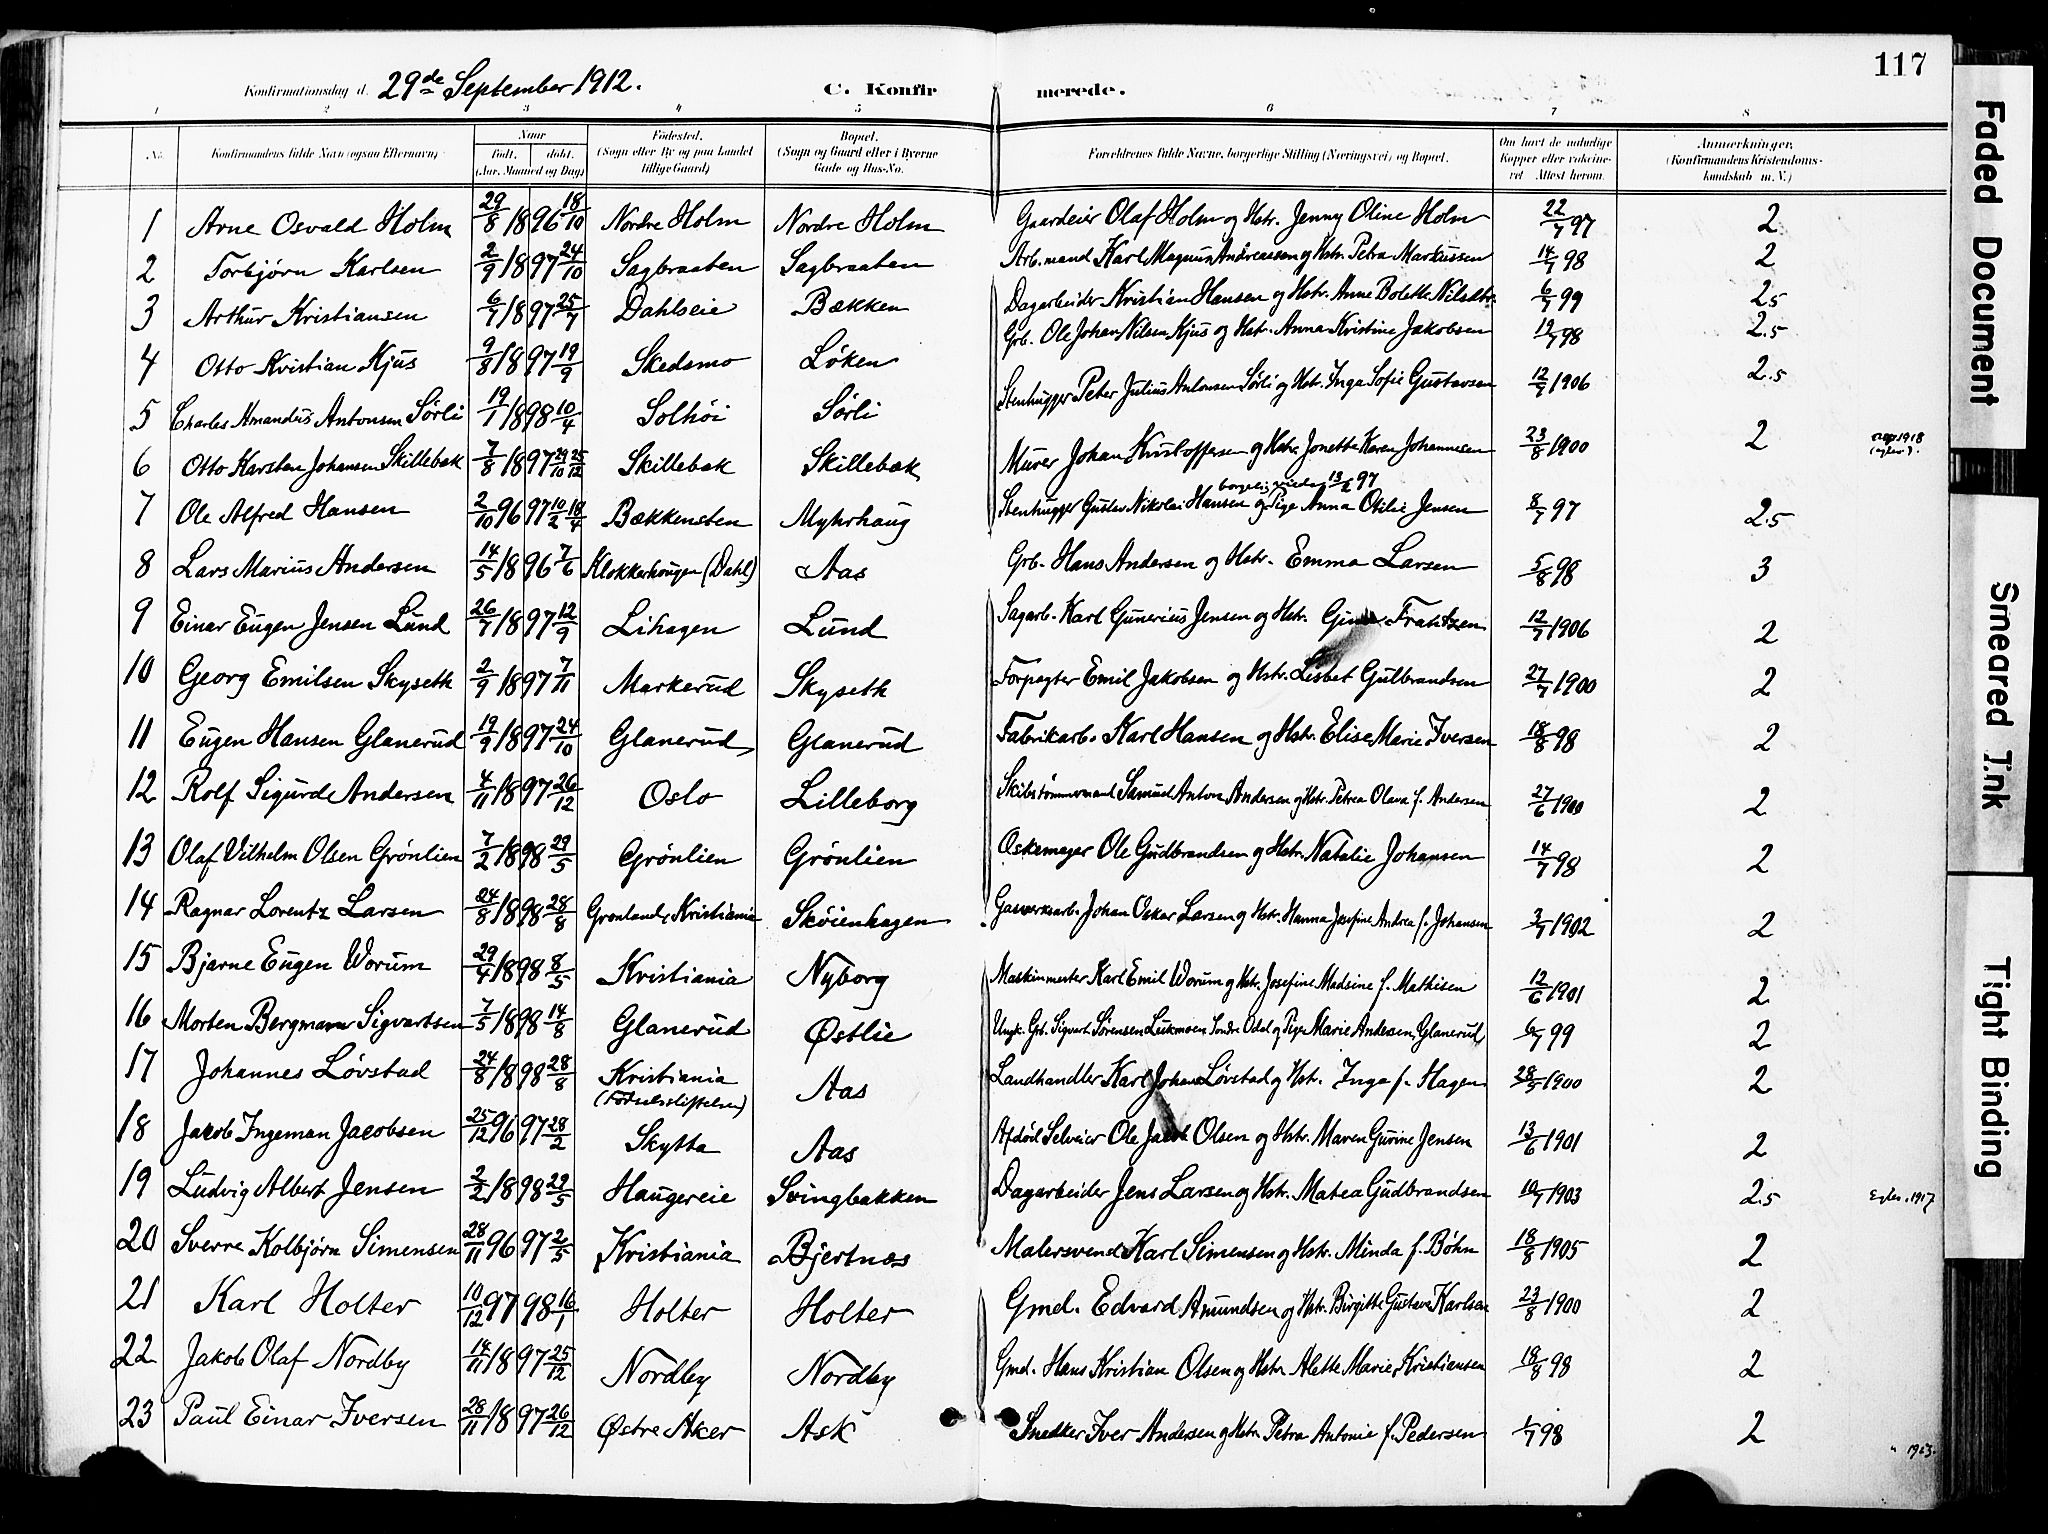 117
Konfirmationsdag d. 29de September 1912. C. Konfirmerede.
1 2 3 4 5 6 7 8
No. Konfirmandens fulde Navn (ogsaa Efternavn). Naar født. døbt. (Aar, Maaned og Dag) Fødested. (Sogn eller By og paa Landet tillige Gaard) Bopæl. (Sogn og Gaard eller i Byerne Gade og Hus-No. Forældrenes fulde Navne, borgerlige Stilling (Næringsvei) og Bopæl. Om havt de naturlige Kopper eller vaccineret Attest herom. Anmerkninger. (Konfirmandens Kristendomskundskab m. V.)
1 Arne Osvald Holm 29/8 1896 18/10 Nordre Holm Nordre Holm Gaardeier Olaf Holm og Hstr. Jenny Oline Holm 22/7 97 2
2 Torbjørn Karlsen 2/9 1897 24/10 Sagbraaten Sagbraaten Arb.mand Karl Magnus Andreassen og Hstr. Petra Markussen 14/7 98 2
3 Arthur Kristiansen 6/7 1897 25/7 Dahlseie Bækken Dagarbeider Kristian Hansen og Hstr. Anne Bolette Nilsdtr. 6/7 99 2.5
4 Otto Kristian Kjus 9/8 1897 19/9 Skedsmo Løken Grb. Ole Johan Nilsen Kjus og Hstr. Anna Kristine Jakobsen 12/7 98 2.5
5 Charles Amandus Antonsen Sørli 19/1 1898 10/4 Solhöi Sørli Stenhugger Peter Julius Antonsen Sørli og Hstr. Inga Sofie Gustavsen 12/7 1906 2.5
6 Otto Karsten Johansen Skillebæk 7/8 1897 29/10 25/12 Skillebæk Skillebæk Murer Johan Kristoffersen og Hstr. Jonette Karen Johannesen 23/8 1900 2 1918
7 Ole Alfred Hansen 2/10 96 97 10/2 18/4 Bækkensten Myhrhaug Stenhugger Gustav Nikolai Hansen og Pige Anna Otilie Jensen borgerlig viede 13/2 97 8/7 97 2.5
8 Lars Marius Andersen 14/5 1896 7/6 Klokkerhougen (Dahl) Aas Grb. Hans Andersen og Hstr. Emma Larsen 5/8 98 3
9 Einar Eugen Jensen Lund 26/7 1897 12/9 Lihagen Lund Sagarb. Karl Gunerius Jensen og Hstr. Frantzen 12/7 1906 2
10 Georg Emilsen Skyseth 2/9 1897 7/11 Markerud Skyseth Forpagter Emil Jakobsen og Hstr. Lisbet Gulbrandsen 27/7 1900 2
11 Eugen Hansen Glanerud 19/9 1897 24/10 Glanerud Glanerud Fabrikarb. Karl Hansen og Hstr. Elise Marie Iversen 18/8 98 2
12 Rolf Sigurd Andersen 4/11 1897 26/12 Oslo Lilleborg Skibstømmermand Samuel Anton Andersen og Hstr. Petrea Olava f. Andersen 27/6 1900 2
13 Olaf Vilhelm Olsen Grönlien 7/2 1898 29/5 Grönlien Grönlien Oskemager Ole Gudbrandsen og Hstr. Natalie Johansen 14/7 98 2
14 Ragnar Lorentz Larsen 24/8 1898 28/8 Grønland, Kristiania Skøienhagen Gasverksarb. Johan Oskar Larsen og Hstr. Hanna Josefine Andrea f. Johansen 3/7 1902 2
15 Bjarne Eugen Worum 29/4 1898 8/5 Kristiania Nyborg Maskinmester Karl Emil Worum og Hstr. Josefine Madsine f. Mathisen 12/6 1901 2
16 Morten Bergmann Sigvartsen 7/5 1898 14/8 Glanerud Østlie Ungk. Grb. Sigvart Sørensen Lukmoen Søndre Odal og Pige Marie Andersen, Glanerud 6/7 99 2
17 Johannes Løvstad 24/8 1898 28/8 Kristiania (Fødselsstiftelsen) Aas Landhandler Karl Johan Løvstad og Hstr. Inga f. Hagen 28/5 1900 2
18 Jakob Ingeman Jacobsen 25/12 96 97 28/2 Skytta Aas Afdød Selveier Ole Jacob Olsen og Hstr. Maren Gurine Jensen 13/6 1901 2
19 Ludvig Albert Jensen 2/2 1898 29/5 Haugereie Svingbakken Dagarbeider Jens Larsen og Hstr. Matea Gudbrandsen 10/7 1903 2.5 1917
20 Sverre Kolbjørn Simensen 28/11 96 97 2/5 Kristiania Bjertnæs Malersvend Karl Simensen og Hstr. Minda f. Bøhn 18/8 1905 2
21 Karl Holter 10/12 97 98 16/1 Holter Holter Gmd. Edvard Amundsen og Hstr. Birgitte Gustava Karlsen 23/8 1900 2
22 Jakob Olaf Nordby 14/11 1897 25/12 Nordby Nordby Gmd. Hans Kristian Olsen og Hstr. Alette Marie Kristiansen 18/8 98 2
23 Paul Einar Iversen 28/11 1897 26/12 Østre Aker Ask Snedker Iver Andersen og Hstr. Petra Antonie f. Pedersen 1/7 98 2
" 1923.
Faded Document
Smeared Ink
Tight Binding